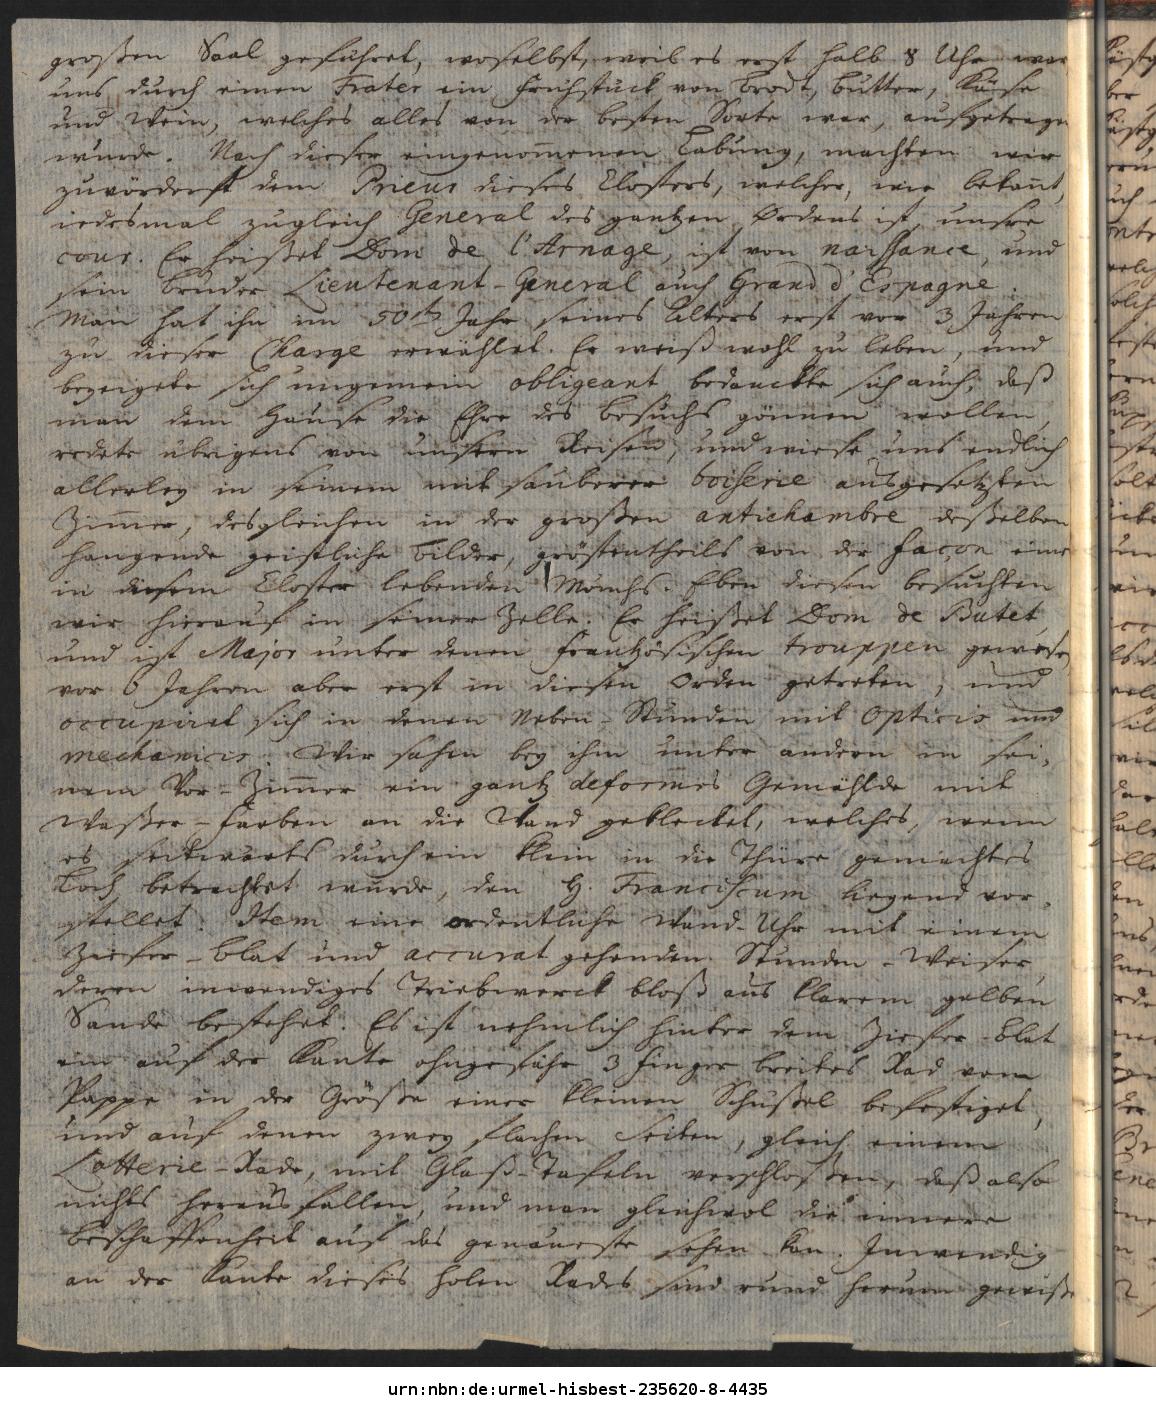 großen Saal geführet, woselbst, weil es erst halb 8 Uhr war
uns durch einen Frater ein Frühstück von Brodt, Butter, Käse
und Wein, welches alles von der besten Sorte war, aufgetragen
wurde. Nach dieser eingenom̄enen Labung, machten wir
zuvörderst dem Prieur dieses Closters, welcher, wie bekan̄t,
iedesmal zugleich General des gantzen Ordens ist, unsere
cour. Er heißet Dom de l'Arnage, ist von naissance, und
sein Bruder Lieutenant-General auch Grand d'Espagne.
Man hat ihn im 50th Jahr seines Alters erst vor 3 Jahren
zu dieser Charge erwählet. Er weiß wohl zu leben, und
bezeigete sich ungemein obligeant bedanckte sich auch, daß
man dem Hause die Ehre des Besuchs gönnen wollen,
redete übrigens von unsern Reisen, und wiese uns endlich
allerley in seinem mit sauberer boiserie ausgesetzten
Zim̄er, desgleichen in der großen antichambre deßelben
hangende geistliche Bilder, gröstentheils von der façon eines
in diesem Closter lebenden Mönchs. Eben diesen besuchten
wir hierauf in seiner Zelle. Er heißet Dom de Butet,
und ist Major unter denen Frantzösischen trouppen gewesen,
vor 6 Jahren aber erst in diesen Orden getreten, und
occupiret sich in denen Neben-Stunden mit Opticis und
mechanicis. Wir sahen bey ihm unter andern in sei-
nem Vor-Zim̄er ein gantz deformes Gemählde mit
Waßer-Farben an die Wand gekleckt, welches, wenn
es seitwärts durch ein klein in die Thüre gemachtes
Loch betrachtet wurde, den H. Franciscum liegend vor-
stellet. Item eine ordentliche Wand-Uhr mit einem
Ziefer-Blat und accurat gehenden Stunden-Weiser,
deren inwendiges Triebwerck bloß aus klarem gelben
Sande bestehet. Es ist nehmlich hinter dem Ziefer-Blat
ein auf der Kante ohngefähr 3 Finger breites Rad von
Pappe in der Größe einer kleinen Schüßel befestiget,
und auf denen zwey flachen Seiten, gleich einem
Lotterie-Rade, mit Glaß-Tafeln verschloßen, daß also
nichts heraus fallen, und man gleichwol die innere
Beschaffenheit auf das genaueste sehen kan. Inwendig
an der Kante dieses holen Rades sind rund herum gewiße
urn:nbn:de:urmel-hisbest-235620-8-4435